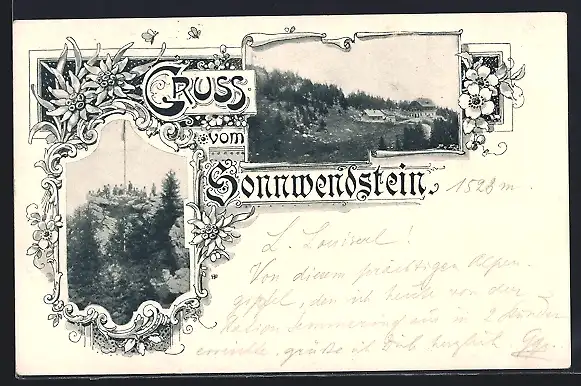 GRUSS
vom
Sonnwendstein.
1523 m.
L. Louise!
Von diesem prächtigen Alpen-
gipfel, den ich heute von der
Station Semmering aus in 2 Stunden
erreichte, grüße ich Dich herzlich